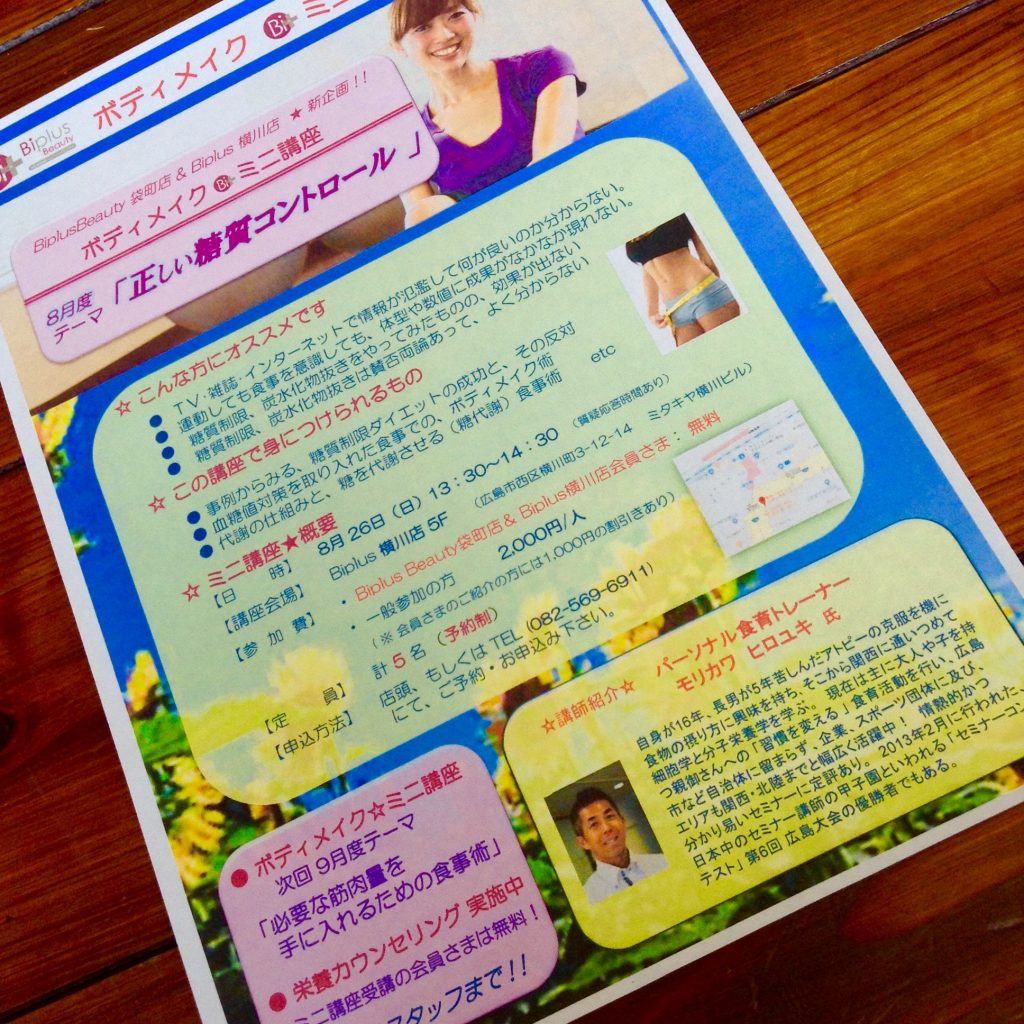 Biplus
Beauty
ボディメイク Bi+ ミニ
BiplusBeauty 袋町店 & Biplus 横川店 ★ 新企画!!
ボディメイク Bi+ ミニ講座
8月度
テーマ
「正しい糖質コントロール 」
☆ こんな方にオススメです
● TV・雑誌・インターネットで情報が氾濫して何が良いのか分からない。
● 運動しても食事を意識しても、体型や数値に成果がなかなか現れない。
● 糖質制限、炭水化物抜きをやってみたものの、効果が出ない
● 糖質制限、炭水化物抜きは賛否両論あって、よく分からない
☆ この講座で身につけられるもの
● 事例からみる、糖質制限ダイエットの成功と、その反対
● 血糖値対策を取り入れた食事での、ボディメイク術
● 代謝の仕組みと、糖を代謝させる(糖代謝)食事術 etc
☆ ミニ講座★概要
【日 時】 8月 26日(日)13:30~14:30 (質疑応答時間あり)
【講座会場】 Biplus 横川店 5F (広島市西区横川町3-12-14 ミタキヤ横川ビル)
【参 加 費】 ・Biplus Beauty袋町店& Biplus横川店会員さま: 無料
・一般参加の方 2,000円/人
(※ 会員さまのご紹介の方には1,000円の割引きあり)
【定 員】 計 5 名 (予約制)
【申込方法】 店頭、もしくは TEL (082-569-6911)
にて、ご予約・お申込み下さい。
☆講師紹介☆ パーソナル食育トレーナー
モリカワ ヒロユキ 氏
自身が16年、長男が6年苦しんだアトピーの克服を機に
食物の摂り方に興味を持ち、そこから関西に通いつめて
細胞学と分子栄養学を学ぶ。 現在は主に大人や子を持
つ親御さんへの「習慣を変える」食育活動を行い、広島
市など自治体に留まらず、企業、スポーツ団体に及び、
エリアも関西・北陸までと幅広く活躍中! 情熱的かつ
分かり易いセミナーに定評あり。2013年2月に行われた、
日本中のセミナー講師の甲子園といわれる「セミナーコン
テスト」第6回 広島大会の優勝者でもある。
● ボディメイク☆ミニ講座
次回 9月度テーマ
「必要な筋肉量を
手に入れるための食事術」
● 栄養カウンセリング 実施中
ミニ講座受講の会員さまは無料!
スタッフまで!!